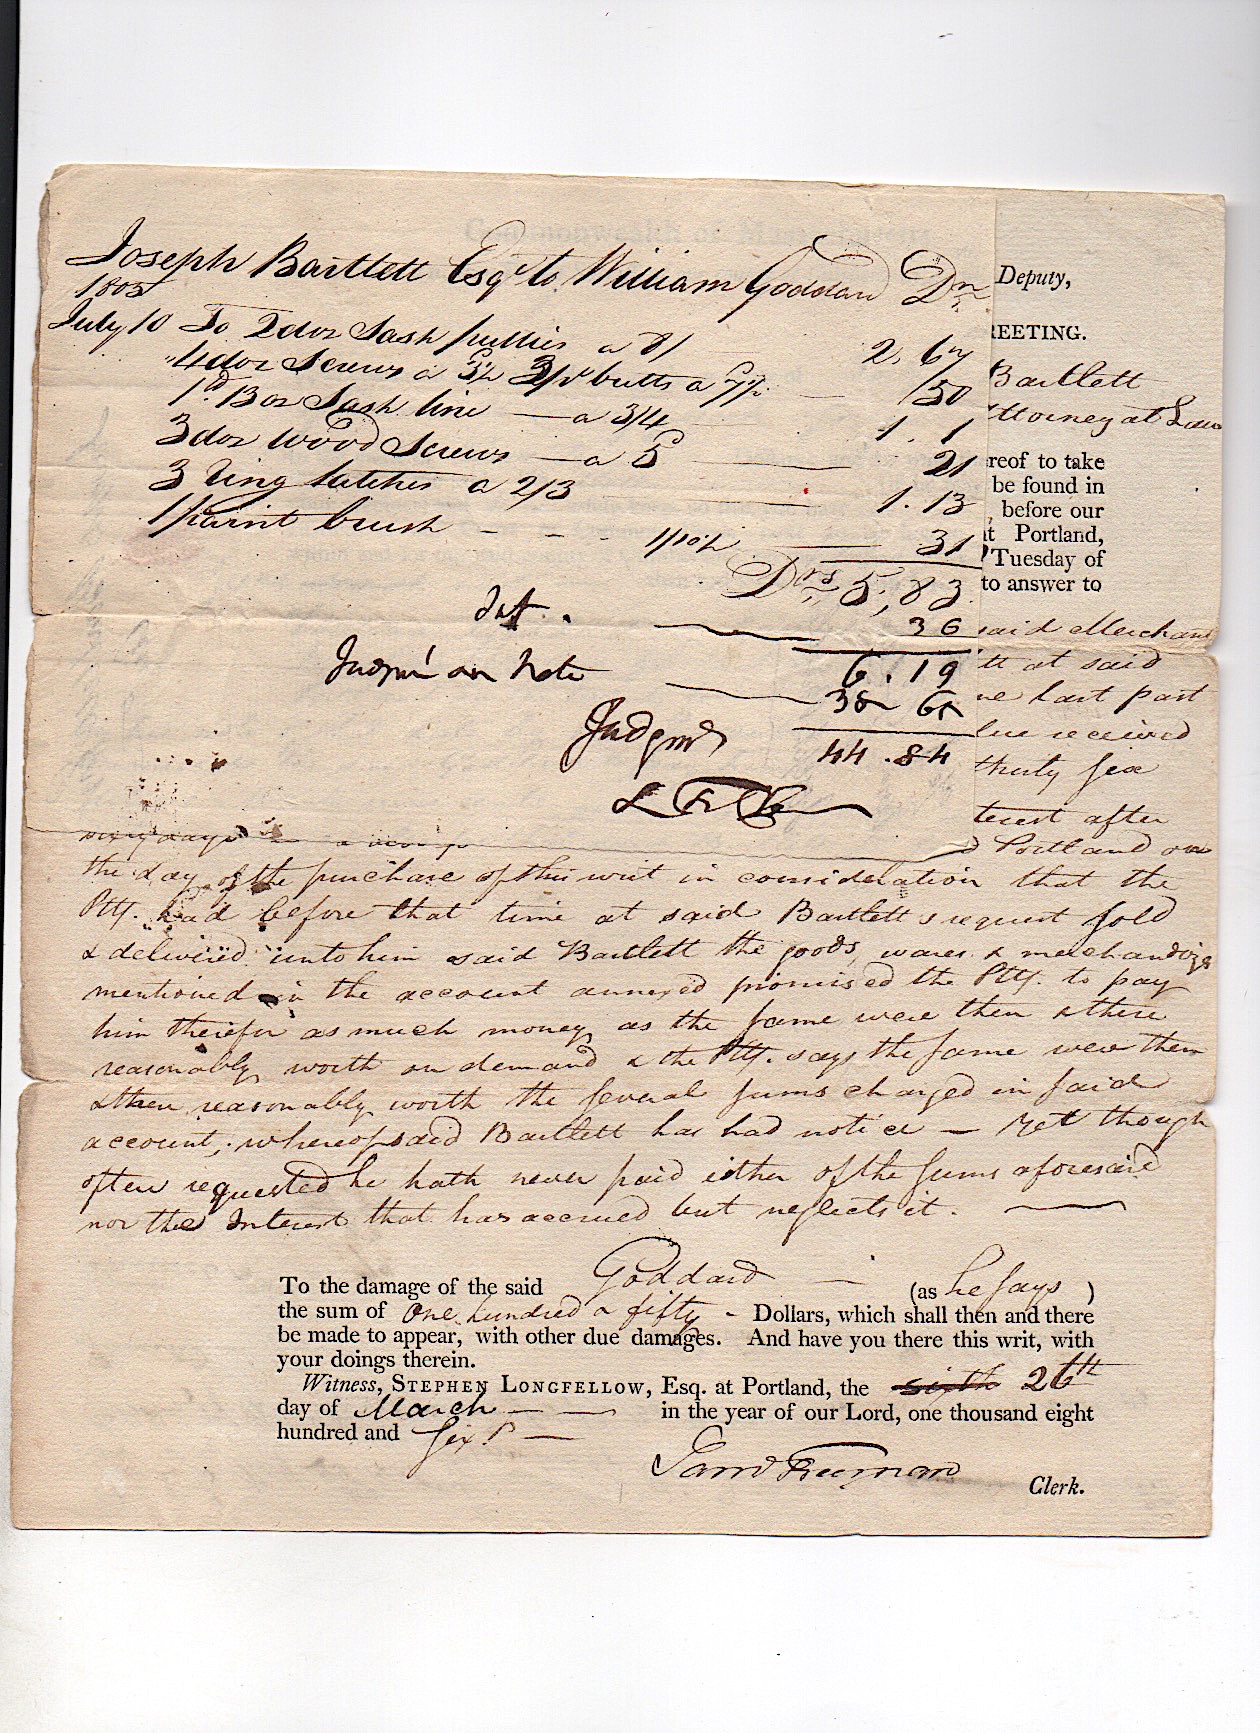 Joseph Bartlett Esqr to William Goddard Dr
1805
July 10 To 2 doz Sash pullies a 8/ 2.67
"4 doz Screws a butts a /50
1 Box Sash line — a 3/4 1.1
3 doz Wood Screws — a 5 21
3 Ring latches a 2/3 1.13
1 paint brush - - - 1/10½ 31
Drs 5,83
Int. 36
6.19
Judgmt on Note 38 65
Judgmt 44.84
Deputy,
REETING.
Bartlett
ttorney at Law
reof to take
be found in
, before our
at Portland,
Tuesday of
to answer to
said Merchant
tt at said
ne last past
lue received
thirty six
terest after
Portland on
sixty days
the day of the purchase of this writ in consideration that the
Plff. had before that time at said Bartlett's request sold
& delivered unto him said Bartlett the goods, wares & merchandize
mentioned in the account annexed promised the Plff. to pay
him therefor as much money as the same were then & there
reasonably worth on demand & the Plff. says the same were then
& there reasonably worth the several sums charged in said
account, whereof said Bartlett has had notice — Yet though
often requested he hath never paid either of the sums aforesaid
nor the Interest that has accrued but neglects it. —
To the damage of the said Goddard — (as he says )
the sum of One hundred & fifty - Dollars, which shall then and there
be made to appear, with other due damages. And have you there this writ, with
your doings therein.
Witness, STEPHEN LONGFELLOW, Esq. at Portland, the sixth 26th
day of March — — in the year of our Lord, one thousand eight
hundred and six. —
Saml Freeman
Clerk.